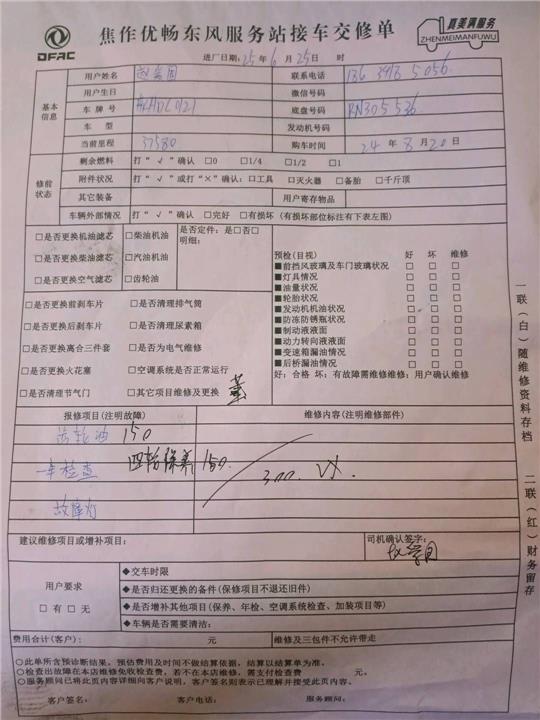 DFAC
焦作优畅东风服务站接车交修单
真美满服务
ZHENMEIMANFUWU
进厂日期:25年6月25日 时
基本信息
用户姓名
联系电话
用户生日
微信号码
车牌号
底盘号码 RN305536
车型
发动机号码
当前里程 37580
购车时间 24年8月20日
修前状态
剩余燃料 打“√”确认 □0 □1/4 □1/2 □1
附件状况 打“√”或打“×”确认:□工具 □灭火器 □备胎 □千斤顶
其它装备 用户寄存物品
车辆外部情况 打“√”确认 □完好 □有损坏(有损坏部位标注有下表左图)
□是否更换机油滤芯 □柴油机油 是否定件:是□否□
明细:
□是否更换柴油滤芯 □汽油机油
□是否更换空气滤芯 □齿轮油
预检(目视) 好 坏 维修
■前挡风玻璃及车门玻璃状况 □ □ □
■灯具情况 □ □ □
■油量状况 □ □ □
■轮胎状况 □ □ □
■发动机机油状况 □ □ □
■防冻防锈瓶状况 □ □ □
■制动液液面 □ □ □
■动力转向液液面 □ □ □
■变速箱漏油情况 □ □ □
■后桥漏油情况 □ □ □
好:合格 坏:有故障需维修维修:用户确认维修
□是否更换前刹车片 □是否清理排气筒
□是否更换后刹车片 □是否清理尿素箱
□是否更换离合三件套 □是否为电气维修
□是否更换火花塞 □空调系统是否正常运行
□是否清理节气门 □其它项目维修及更换
报修项目(注明故障) 维修内容(注明维修部件)
齿轮油 150
年检查 四轮保养 150.
300.
故障灯
建议维修项目或增补项目:
司机确认签字:
用户要求
□有 □无
◆交车时限
◆是否归还更换的备件(保修项目不退还旧件)
◆是否增补其他项目(保养、年检、空调系统检查、加装项目等)
◆车辆是否需要清洁:
费用合计(客户): 元 维修及三包件不允许带走
○此单所含预诊断结果,预估费用及时间不做结算依据,结算以结算单为准。
○检查出故障在本店维修免收检查费,若不在本店维修,需支付检查费 元。
○服务顾问已将此页内容详细向客户说明,客户签名则表示已理解并接受此页内容。
客户签名: 客户电话: 服务顾问:
一联(白)随维修资料存档
二联(红)财务留存